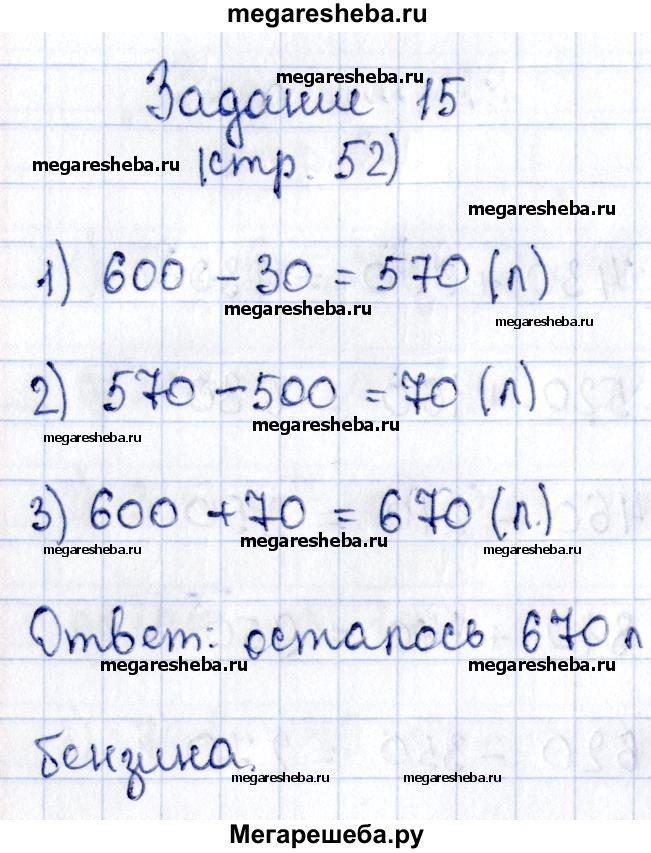 megaresheba.ru
megaresheba.ru
Задание 15
megaresheba.ru
(стр. 52)
megaresheba.ru
1) 600 - 30 = 570 (л)
megaresheba.ru
megaresheba.ru
2) 570 - 500 = 70 (л)
megaresheba.ru
megaresheba.ru
megaresheba.ru
3) 600 + 70 = 670 (л.)
megaresheba.ru
megaresheba.ru
megaresheba.ru
Ответ: осталось 670 л
megaresheba.ru
megaresheba.ru
бензина.
megaresheba.ru
megaresheba.ru
Мегарешеба.ру